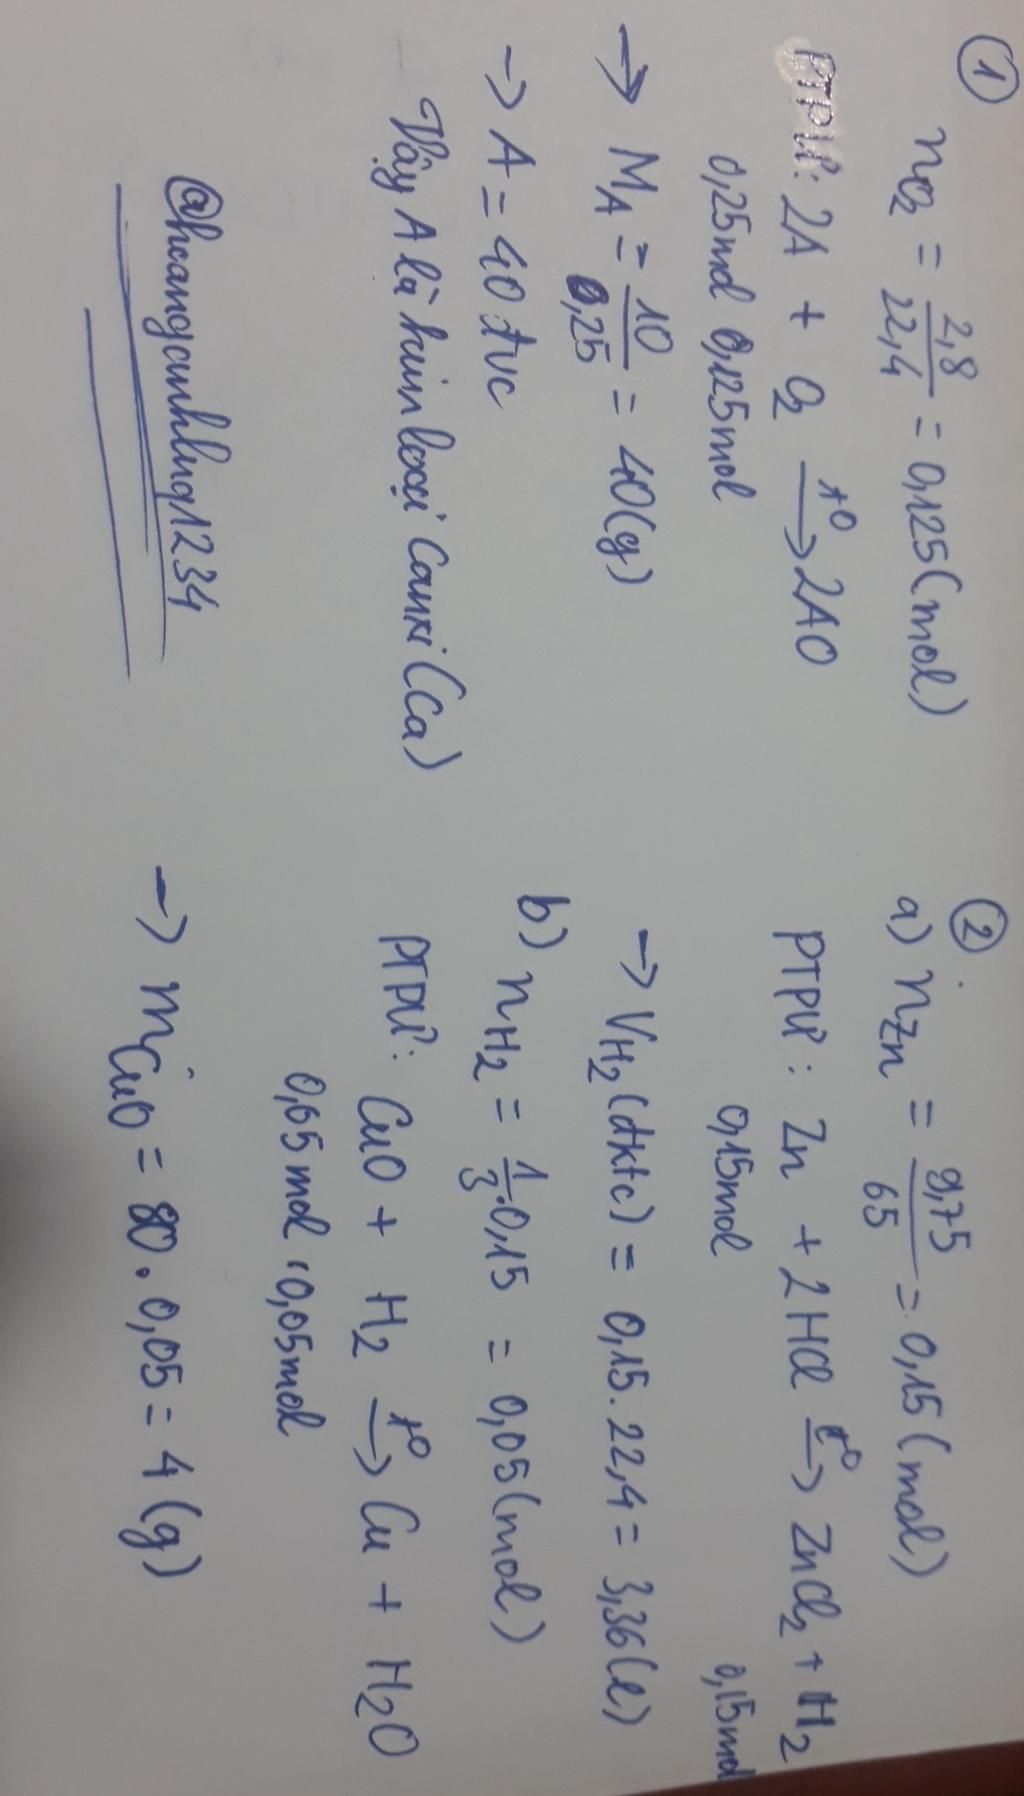 ①
nO2 = 2,8/22,4 = 0,125(mol)
PTPƯ: 2A + O2 t°→ 2AO
0,25mol 0,125mol
→ MA = 10/0,25 = 40(g)
→ A = 40 đvc
Vậy A là kim loại Canxi (Ca)
@hoanganhlug1234
②
a) nZn = 9,75/65 = 0,15(mol)
PTPƯ: Zn + 2HCl t°→ ZnCl2 + H2
0,15mol 0,15mol
→ VH2(đktc) = 0,15.22,4 = 3,36(l)
b) nH2 = 1/3.0,15 = 0,05(mol)
PTPƯ: CuO + H2 t°→ Cu + H2O
0,05mol 0,05mol
→ mCuO = 80.0,05 = 4(g)